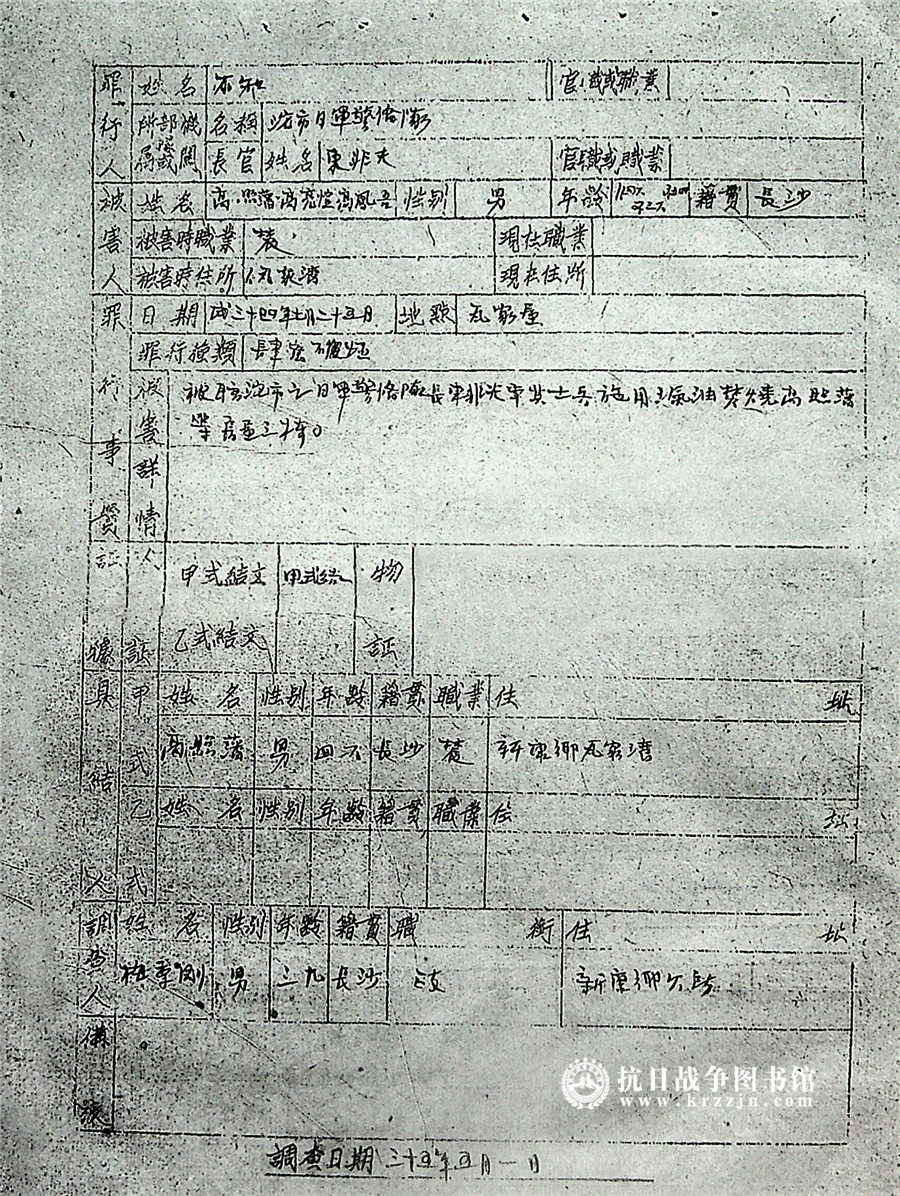 罪行人 姓名 不知 官職或職業
所部機
屬隊或關 名稱 沱市日軍警俻隊
長官姓名 東非夫 官職或職業
被害人 姓名 高照藩 性別 男 年龄 籍貫 長沙
被害時職業 農 現在職業
被害時住所 現在住所
罪行事實 日期 三十四年七月二十五日 地點 瓦家屋
罪行種類
被害詳情 被駐沱市之日軍警俻隊長東非夫率其士兵施用汽油焚燒高照藩
等房屋三栋。
証據 人証 甲式結文 甲式結 物証
乙式結文
具結人 甲式 姓名 性別 年龄 籍貫 職業 住址
高照藩 男 四六 長沙 農 新康鄉瓦家
乙式 姓名 性別 年龄 籍貫 職業 住址
調查人 姓名 性別 年龄 籍貫 職銜 住址
男 三九 長沙 新康鄉公所
備
抗日战争图书馆
www.krzzjn.com
調查日期 三十五年五月一日